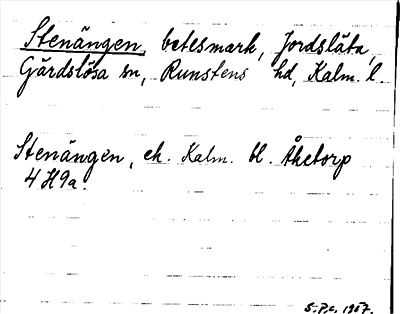 Stenängen, betesmark, Jordslåta,
Gärdslösa sn, Runstens hd, Kalm. l.
Stenängen, ek. Kalm. bl. Åketorp
4 H9a.
S.P.c. 1957.